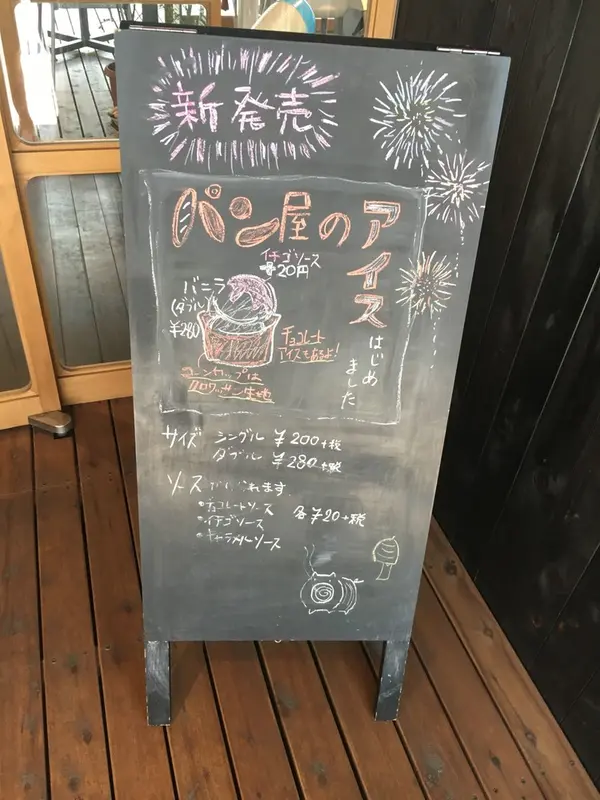 新発売
パン屋のアイス
はじめました
イチゴソース
20円
バニラ
(ダブル)
¥280
チョコレート
アイスもあるよ!
コーンカップは
クロワッサン生地
サイズ シングル ¥200+税
ダブル ¥280+税
ソース かけられます
・チョコレートソース
・イチゴソース 各¥20+税
・キャラメルソース